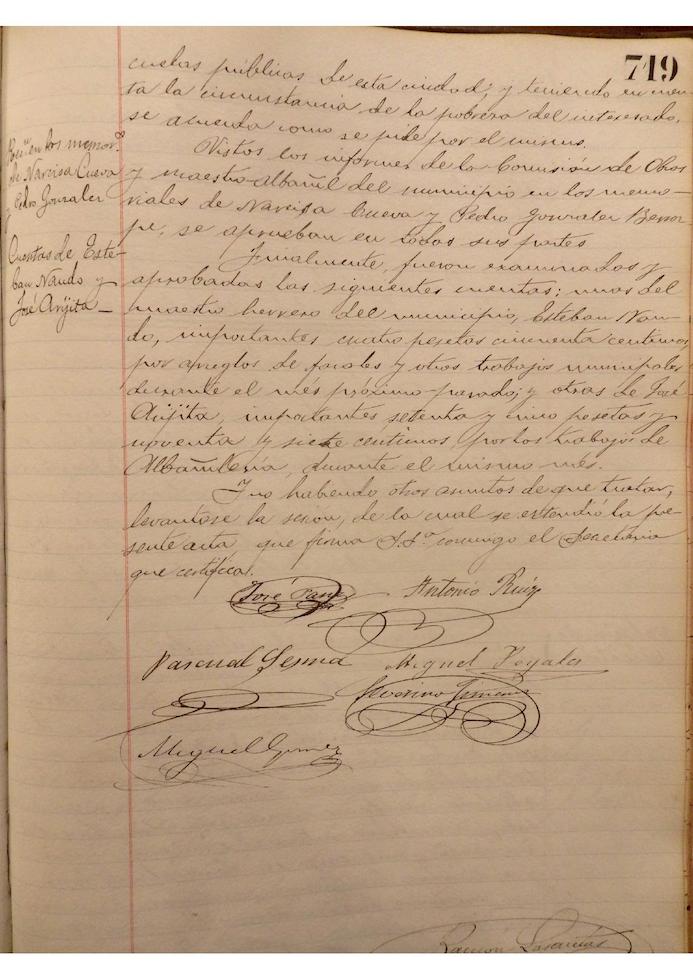 719
cuelas públicas de esta ciudad; y teniendo en cuen-
ta la circunstancia de la pobreza del interesado,
se acuerda como se pide por el mismo.
Vistos los informes de la Comisión de Obras
y maestro-albañil del municipio en los memo-
riales de Narcisa Cueva y Pedro Gonzalez
se aprueban en todas sus partes
Finalmente, fueron examinadas y
aprobadas las siguientes cuentas; unas del
maestro herrero del municipio, Esteban Nan-
do, importantes cuatro pesetas cincuenta centimos
por arreglos de faroles y otros trabajos municipales
durante el més próximo-pasado; y otras de José
Arijita, importantes setenta y cinco pesetas y
noventa y siete centimos, por los trabajos de
Albañilería, durante el mismo més.
Y no habiendo otros asuntos de que tratar,
levantóse la sesion, de la cual se extendió la pre-
sente acta que firma S.Sª. conmigo el Secretario
que certifica.
en los memor.
de Narcisa Cueva
y Pedro Gonzalez
Cuentas de Este-
ban Nando y
José Arijita
José
Antonio Ruiz
Pascual Serma
Miguel
Severino Jimenez
Miguel Gomez
Ramón